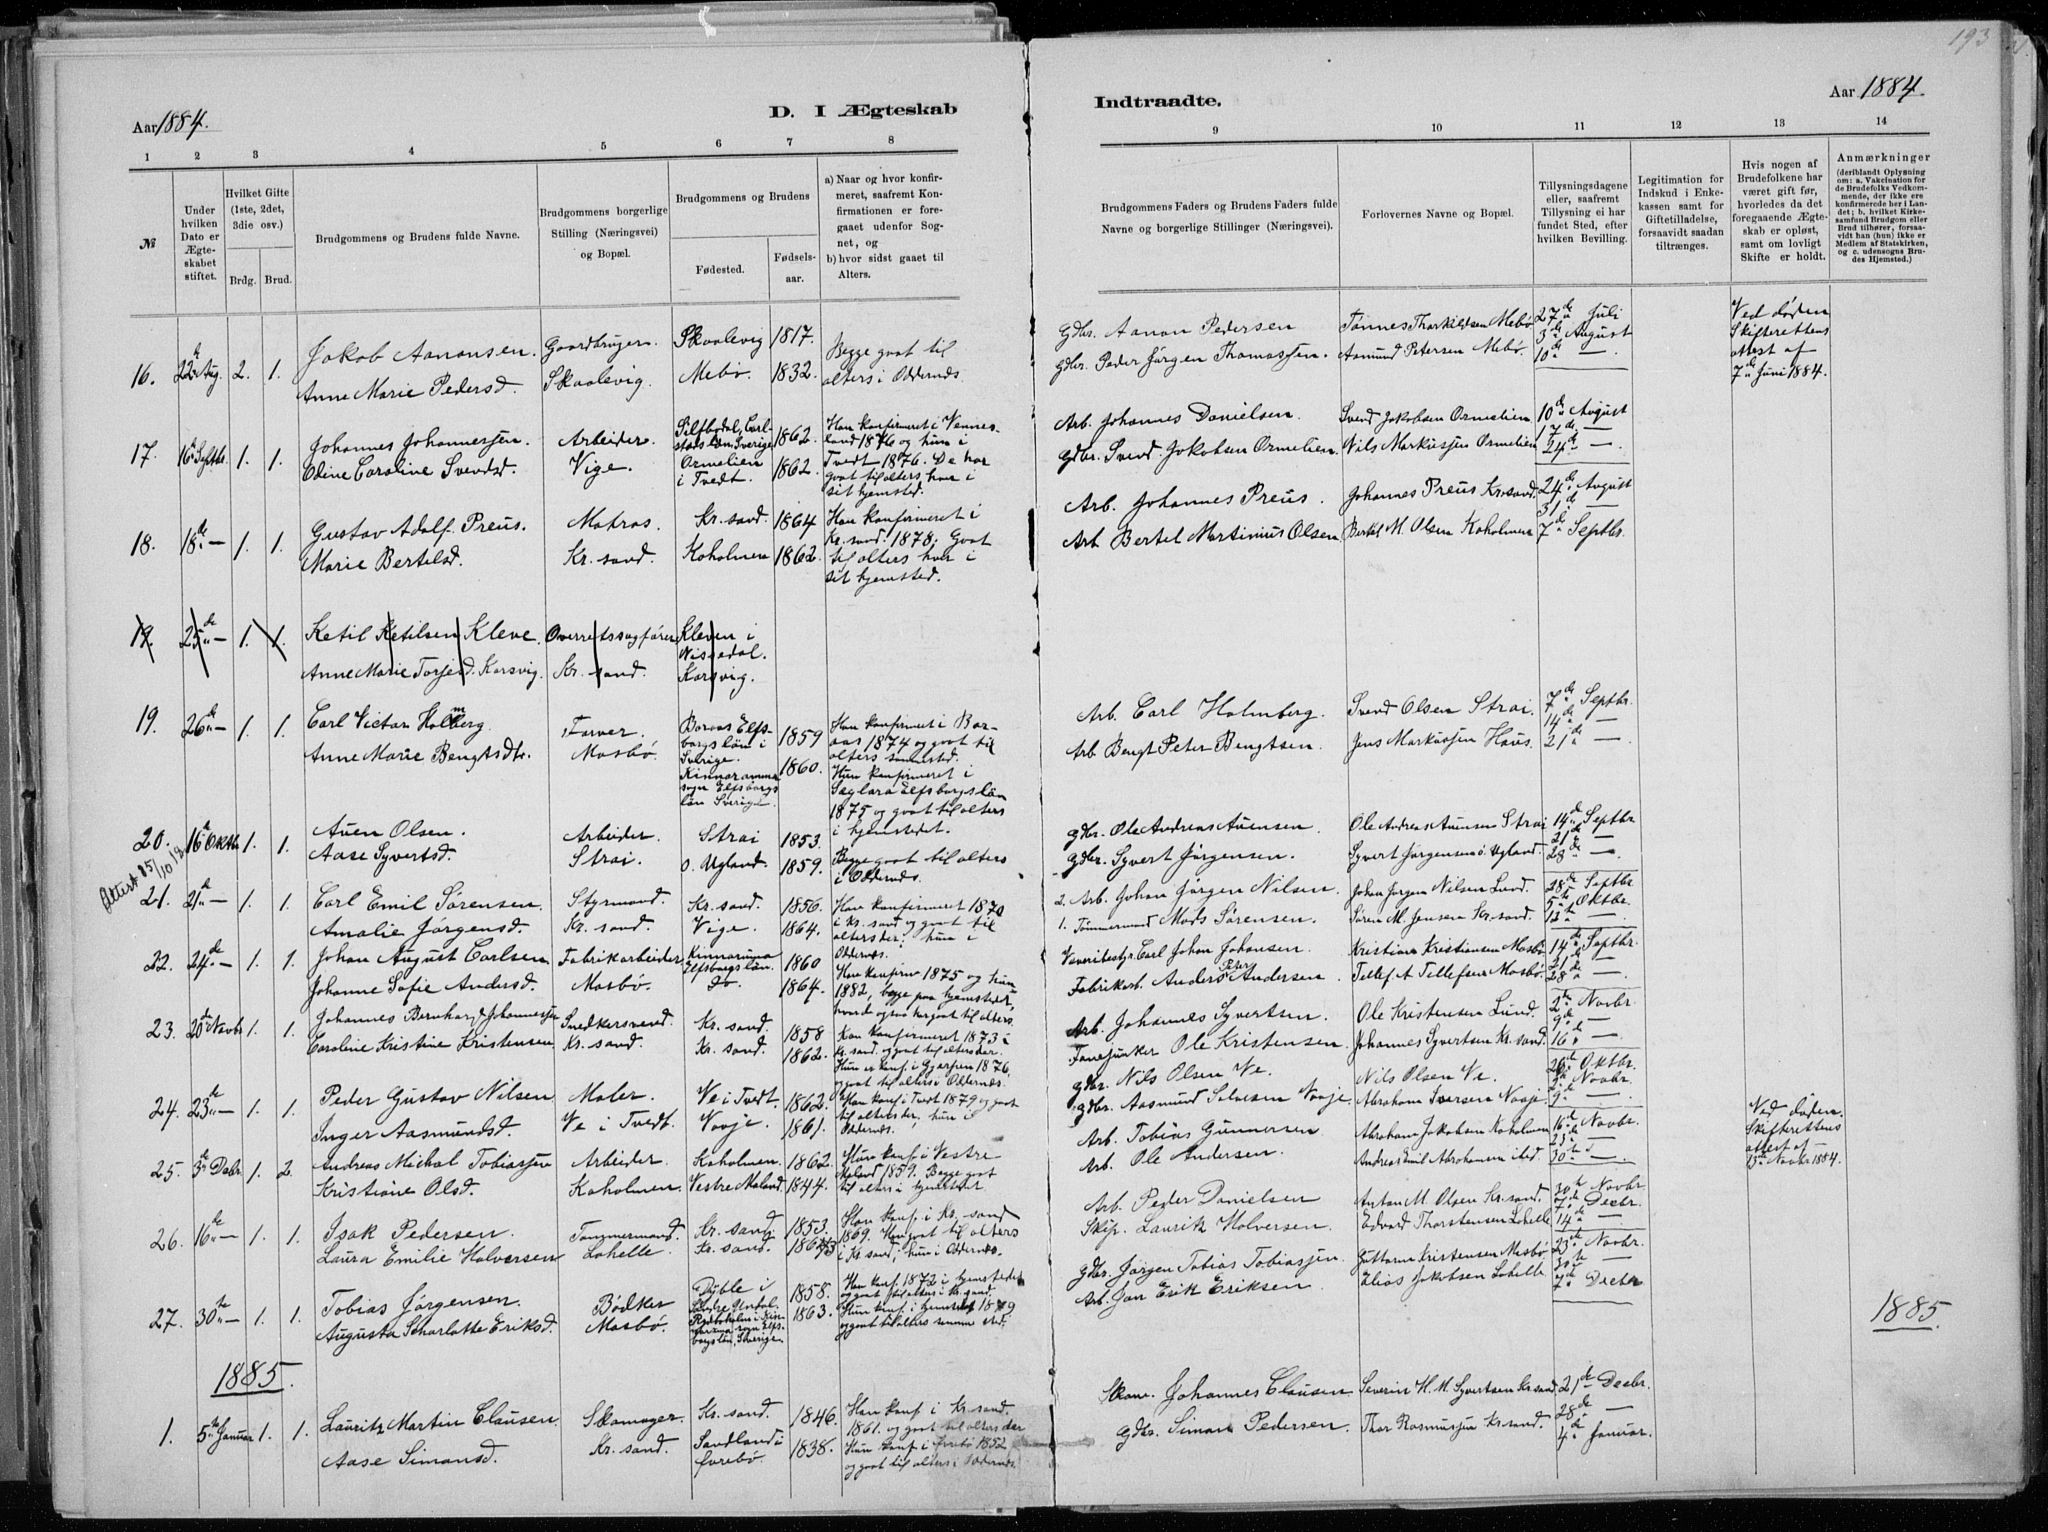 193
Aar 1884.
D. I Ægteskab
Indtraadte.
Aar 1884
1 2 3 4 5 6 7 8
9 10 11 12 13 14
№
Under hvilken Dato er Ægteskabet stiftet.
Hvilket Gifte (1ste, 2det, 3die osv.)
Brdg. Brud.
Brudgommens og Brudens fulde Navne.
Brudgommens borgerlige Stilling (Næringsvei) og Bopæl.
Brudgommens og Brudens
Fødested. Fødselsaar.
a) Naar og hvor konfirmeret, saafremt Konfirmationen er foregaaet udenfor Sognet, og
b) hvor sidst gaaet til Alters.
Brudgommens Faders og Brudens Faders fulde Navne og borgerlige Stillinger (Næringsvei).
Forlovernes Navne og Bopæl.
Tillysningsdagene eller, saafremt Tillysning ei har fundet Sted, efter hvilken Bevilling.
Legitimation for Indskud i Enkekassen samt for Giftetilladelse, forsaavidt saadan tiltrænges.
Hvis nogen af Brudefolkene har været gift før, hvorledes da det foregaaende Ægteskab er opløst, samt om lovligt Skifte er holdt.
Anmærkninger (deriblandt Oplysning om: a. Vakcination for de Brudefolks Vedkommende, der ikke ere konfirmerede her i Landet; b. hvilket Kirkesamfund Brudgom eller Brud tilhører, forsaavidt han (hun) ikke er Medlem af Statskirken, og c. udensogns Brudes Hjemsted.)
16. 22de Aug. 2. 1. Jakob Aanonsen. Gaardbruger. Skaalevig 1817. Begge gaat til
Anne Marie Pedersd. Skaalevig. Mebø. 1832. alters i Oddernæs.
Gdbr. Aanon Pedersen Tønnes Tharkildsen Mebø 27de Juli
Gdbr. Peder Jørgen Thomassen. Aamund Petersen Mebø. 3de August
10de —
Ved døden
Skifterettens
attest af
7de Juni 1884.
17. 16de Septbr. 1. 1. Johannes Johannessen. Arbeider. Silfbodal, Carlstads län, Sverige 1862. Han konfirmeret i Vennesland 1876 og hun i
Edine Caroline Svendsd. Vige. Ormelien i Tvedt. 1862. Tvedt 1876. De har gaat til alters hver i sit hjemsted.
Arb. Johannes Danielsen. Svend Jakobsen Ormelien 10de August
Gdbr. Svend Jakobsen Ormelien. Nils Markussen Ormelien 17de —
24de —
18. 18de — 1. 1. Gustav Adolf Preus. Matros. Kr.sand. 1864 Han konfirmeret i Kr.sand. 1878. Gaat
Marie Bertelsd. Kr.sand. Koholmen 1862. til alters hver i sit hjemsted.
Arb. Johannes Preus. Johannes Preus Kr.sand. 24de August
Arb. Bertel Martinius Olsen Bertel M. Olsen Koholmen 31te
7de Septbr.
19. 25de — 1. 1. Ketil Ketilsen Kleve. Overretssagfører Kleven i Nissedal.
Anne Marie Torjesd. Korsvig. Kr.sand. Korsvig.
19. 26de — 1. 1. Carl Victor Holmberg Farver. Boraas Elfsborgs län i Sverige. 1859 Han konfirmeret i Boraas 1874 og gaat til alters sammested.
Anne Marie Bengtsdtr. Mosbø. Kinnaramma sogn Elfsborgs län Sverige. 1860. Hun konfirmeret i Elfsborgs län 1875 og gaat til alters i hjemstedet.
Arb. Carl Holmberg. Svend Olsen Strai. 7de Septbr.
Arb. Bengt Peter Bengtsen. Jens Markussen Haus. 14de —
21de —
20. 16de Oktbr. 1. 1. Auen Olsen. Arbeider. Strai 1853. Begge gaat til alters
Aase Syvertsd. Strai. o. Ugland. 1859. i Oddernæs.
Gdbr. Ole Andreas Auensen Ole Andreas Auensen Strai 14de Septbr
Gdbr. Syvert Jørgensen. Syvert Jørgensen o. Ugland. 21de —
28de —
Attest 25/10
21. 21de — 1. 1. Carl Emil Sørensen. Styrmand. Kr.sand. 1856. Han konfirmeret 1870
Amalie Jørgensd. Kr.sand. Vige. 1864. i Kr.sand og gaat til alters der, hun i Oddernæs.
2. Arb. Johan Jørgen Nilsen. Johan Jørgen Nilsen Lund. 28de Septbr
1. Tømmermand Mads Sørensen. Søren M. Jensen Kr.sand. 5te Oktbr.
12te —
22. 24de — 1. 1. Johan August Carlsen Fabrikarbeider Kinnaruma Elfsborgs län. 1860 Han konfirm 1875 og hun
Johanne Sofie Andersd. Mosbø. do 1864. 1882, begge paa hjemstedet, hvor de ogsaa har gaat til alters.
Væveribestyr. Carl Johan Johansen. Kristian Kristiansen Mosbø. 14de Septbr.
Fabrikarb. Anders Peter Andersen Tellef A. Tellefsen Mosbø. 21de —
28de —
23. 20de Novbr 1. 1. Johannes Bernhard Johannessen Snedkersvend. Kr.sand. 1858 Han konfirmeret 1873 i
Caroline Kristine Kristensen Kr.sand. Kr.sand. 1862. Kr.sand. og gaat til alters der. Hun er konf. i Gjerpen 1876, og gaat til alters i Oddernæs.
Arb. Johannes Syvertsen. Ole Kristensen Lund. 2de Novbr.
Fanejunker Ole Kristensen Johannes Syvertsen Kr.sand. 9de —
16de —
24. 23de — 1. 1. Peder Gustav Nilsen Maler. Ve i Tvedt. 1862. Han konf. i Tvedt 1879 og gaat
Inger Aasmundsd. Ve i Tvedt. Vaaje. 1861. til alters der, hun i Oddernæs.
Gdbr. Nils Olsen Ve. Nils Olsen Ve. 26de Oktbr.
Gdbr. Aasmund Salvesen Vaaje Abraham Iversen Vaaje. 2de Novbr.
9de —
25. 3de Debr. 1. 2. Andreas Michal Tobiassen Arbeider Koholmen. 1862. Hun konf. i Vestre
Kristiane Olsd. Koholmen. Vestre Moland. 1844. Moland 1859. Begge gaat til alters i hjemstedet.
Arb. Tobias Gunnersen Abraham Jakobsen Koholmen 16de Novbr.
Arb. Ole Andersen. Andreas Emil Abrahamsen ibid. 23de —
30te —
Ved døden.
Skifterettens
attest af
13de Novbr 1884.
26. 16de — 1. 1. Isak Pedersen. Tømmermand. Kr.sand 1853. Han konf. i Kr.sand
Laura Emilie Halversen Lohelle. Kr.sand. 1869. Han gaat til alters i Kr.sand, hun i Oddernæs.
Arb. Peder Danielsen Anton M. Olsen Kr.sand. 30te Novbr
Skip. Lauritz Halversen. Edvard Thorstensen Lohelle 7de Decbr.
14de —
27. 30te — 1. 1. Tobias Jørgensen. Bødker Øyble i Søndre Undal. 1858. Han konf. 1872 i hjemstedet og gaat til alters i Kr.sand.
Augusta Scharlotte Eriksd. Mosbø. Kinnaruma sogn Elfsborgs län, Sverige 1863. Hun konf. i hjemstedet 1879 og gaat til alters samme sted.
Gdbr. Jørgen Tobias Tobiassen Guttorm Kristensen Mosbø 23de Novbr.
Arb. Jan Erik Eriksen Elias Jakobsen Lohelle. 30te —
7de Decbr
1885.
1885.
1. 5te Januar 1. 1. Lauritz Martin Clausen Skomager. Kr.sand. 1846. Han konf. i Kr.sand. 1861. og gaat til alters der
Aase Simonsd. Kr.sand. Sandland i Øvrebø. 1838. Hun konf. i Øvrebø 1852, og gaat til alters i Oddernæs.
Skom. Johannes Clausen Severin H. M. Syvertsen Kr.sand. 21de Decbr.
Gdbr. Simon Pedersen. Thor Rasmussen Kr.sand. 28de —
4de Januar.